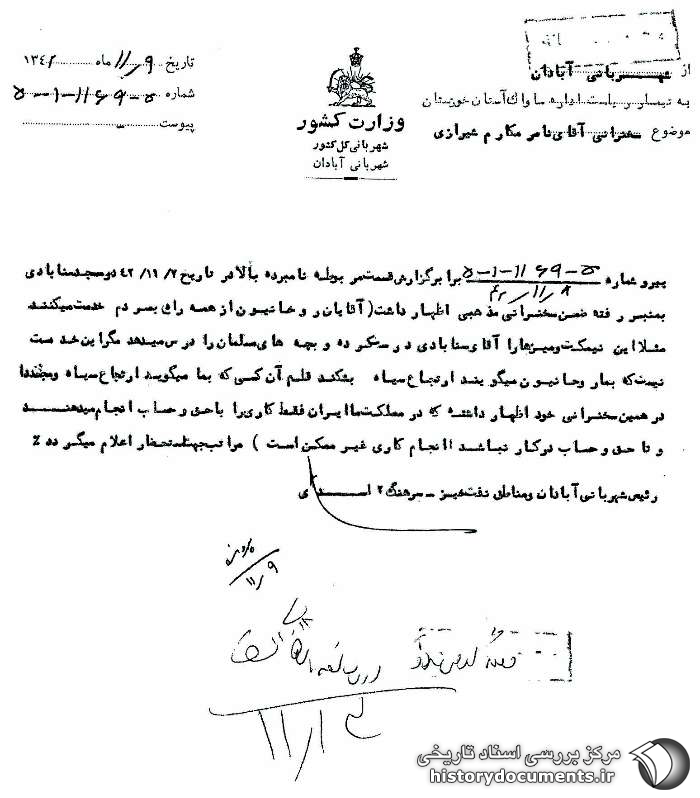 از شهربانی آبادان
به تیمسار ریاست اداره ساواک استان خوزستان
موضوع سخنرانی آقای ناصر مکارم شیرازی
وزارت کشور
شهربانی کل کشور
شهربانی آبادان
تاریخ ۹/۱۱ ماه ۱۳۴۲
شماره ۵-۱-۱۱۶۹-۵
پیوست
پیرو شماره ۵-۱-۱۱۶۹-۵ برابر گزارش قسمت مربوطه نامبرده بالا در تاریخ ۴۲/۱۱/۷ در مسجد سنابادی
۸/۱۱/۴۲
بمنبر رفته ضمن سخنرانی مذهبی اظهار داشت (آقایان روحانیون از همه راه بمردم خدمت میکنند
مثلا این نیمکت و میزها را آقای سنابادی درستکرده و بچه های مسلمان را درس میدهد مگر این خدمت
نیست که بما روحانیون میگویند ارتجاع سیاه بشکند قلم آن کسی که بما میگوید ارتجاع سیاه و مجددا
در همین سخنرانی خود اظهار داشته که در مملکت ما ایران فقط کاری را با حق و حساب انجام میدهند
و تا حق و حساب در کار نباشد انجام کاری غیر ممکن است) مراتب جهت استحضار اعلام میگردد٪
رئیس شهربانی آبادان و مناطق نفت خیز - سرهنگ ۲ اسدی
۹/۱۱
۱۲/۱۱
مرکز بررسی اسناد تاریخی
historydocuments.ir